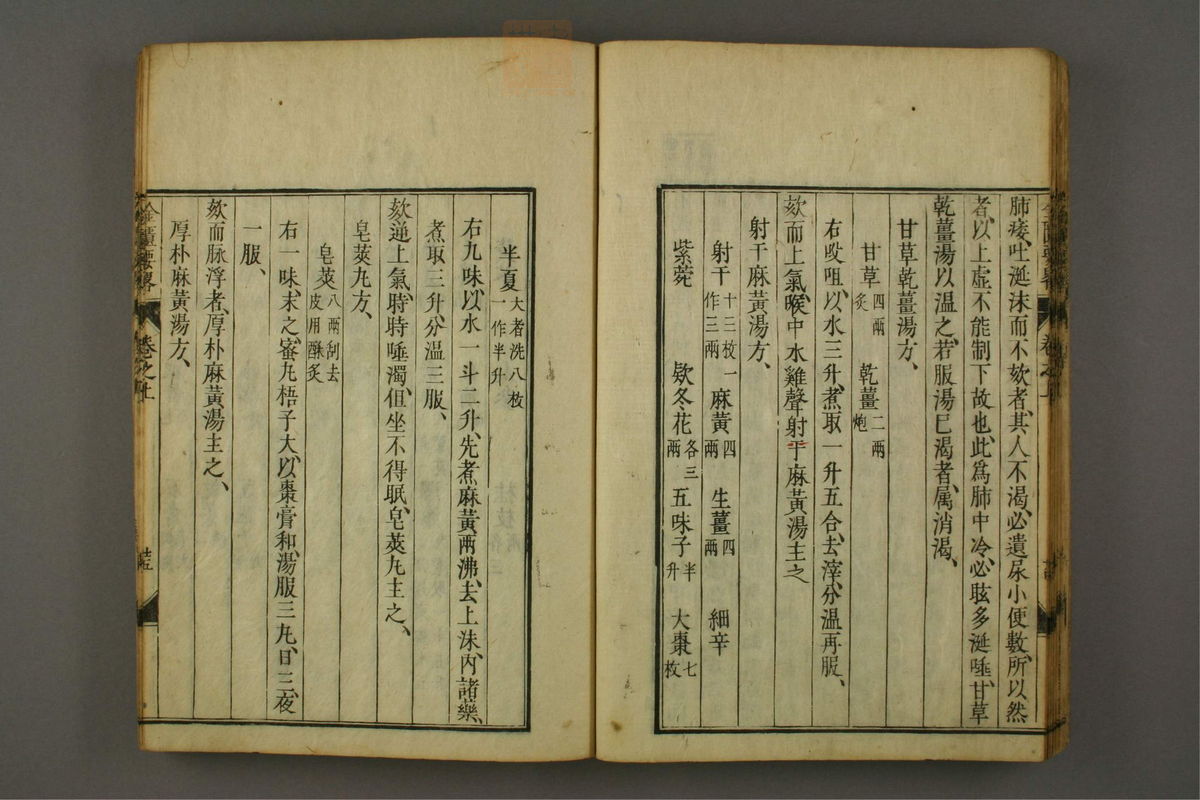 肺痿、吐涎沫而不欬者、其人不渴、必遺尿小便數、所以然
者、以上虛不能制下故也、此爲肺中冷、必眩多涎唾、甘草
乾薑湯以溫之、若服湯已渴者、属消渴、
甘草乾薑湯方、
甘草四兩炙 乾薑二兩炮
右㕮咀、以水三升、煮取一升五合、去滓、分溫再服、
欬而上氣、喉中水雞聲、射干麻黃湯主之
射干麻黃湯方、
射干十三枚一作三兩 麻黃四兩 生薑四兩 細辛
紫菀 款冬花各三兩 五味子半升 大棗七枚
半夏大者洗八枚一作半升
右九味、以水一斗二升、先煮麻黃兩沸、去上沫、內諸藥、
煮取三升、分溫三服、
欬逆上氣、時時唾濁、但坐不得眠、皂莢丸主之、
皂莢丸方、
皂莢八兩刮去皮用酥炙
右一味、末之、蜜丸梧子大、以棗膏和、湯服三丸、日三、夜
一服、
欬而脉浮者、厚朴麻黃湯主之、
厚朴麻黃湯方、
金匱要畧
卷之上